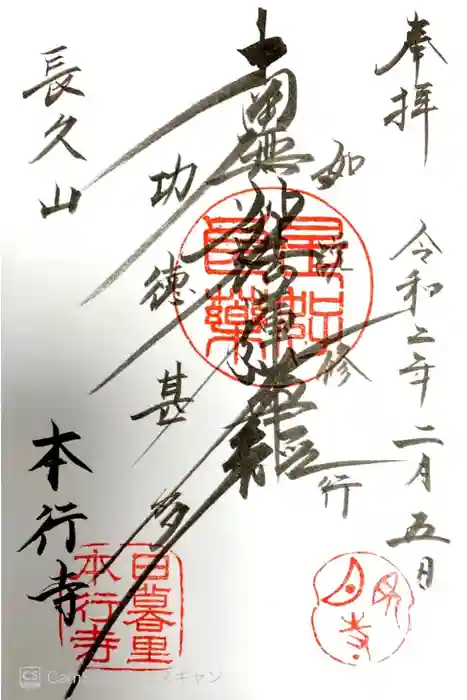 奉拝
令和二年二月五日
如説修行
南無妙法蓮華経
是好良薬
功徳甚多
長久山
本行寺
日暮里
本行寺
月見寺
CS
スキャン